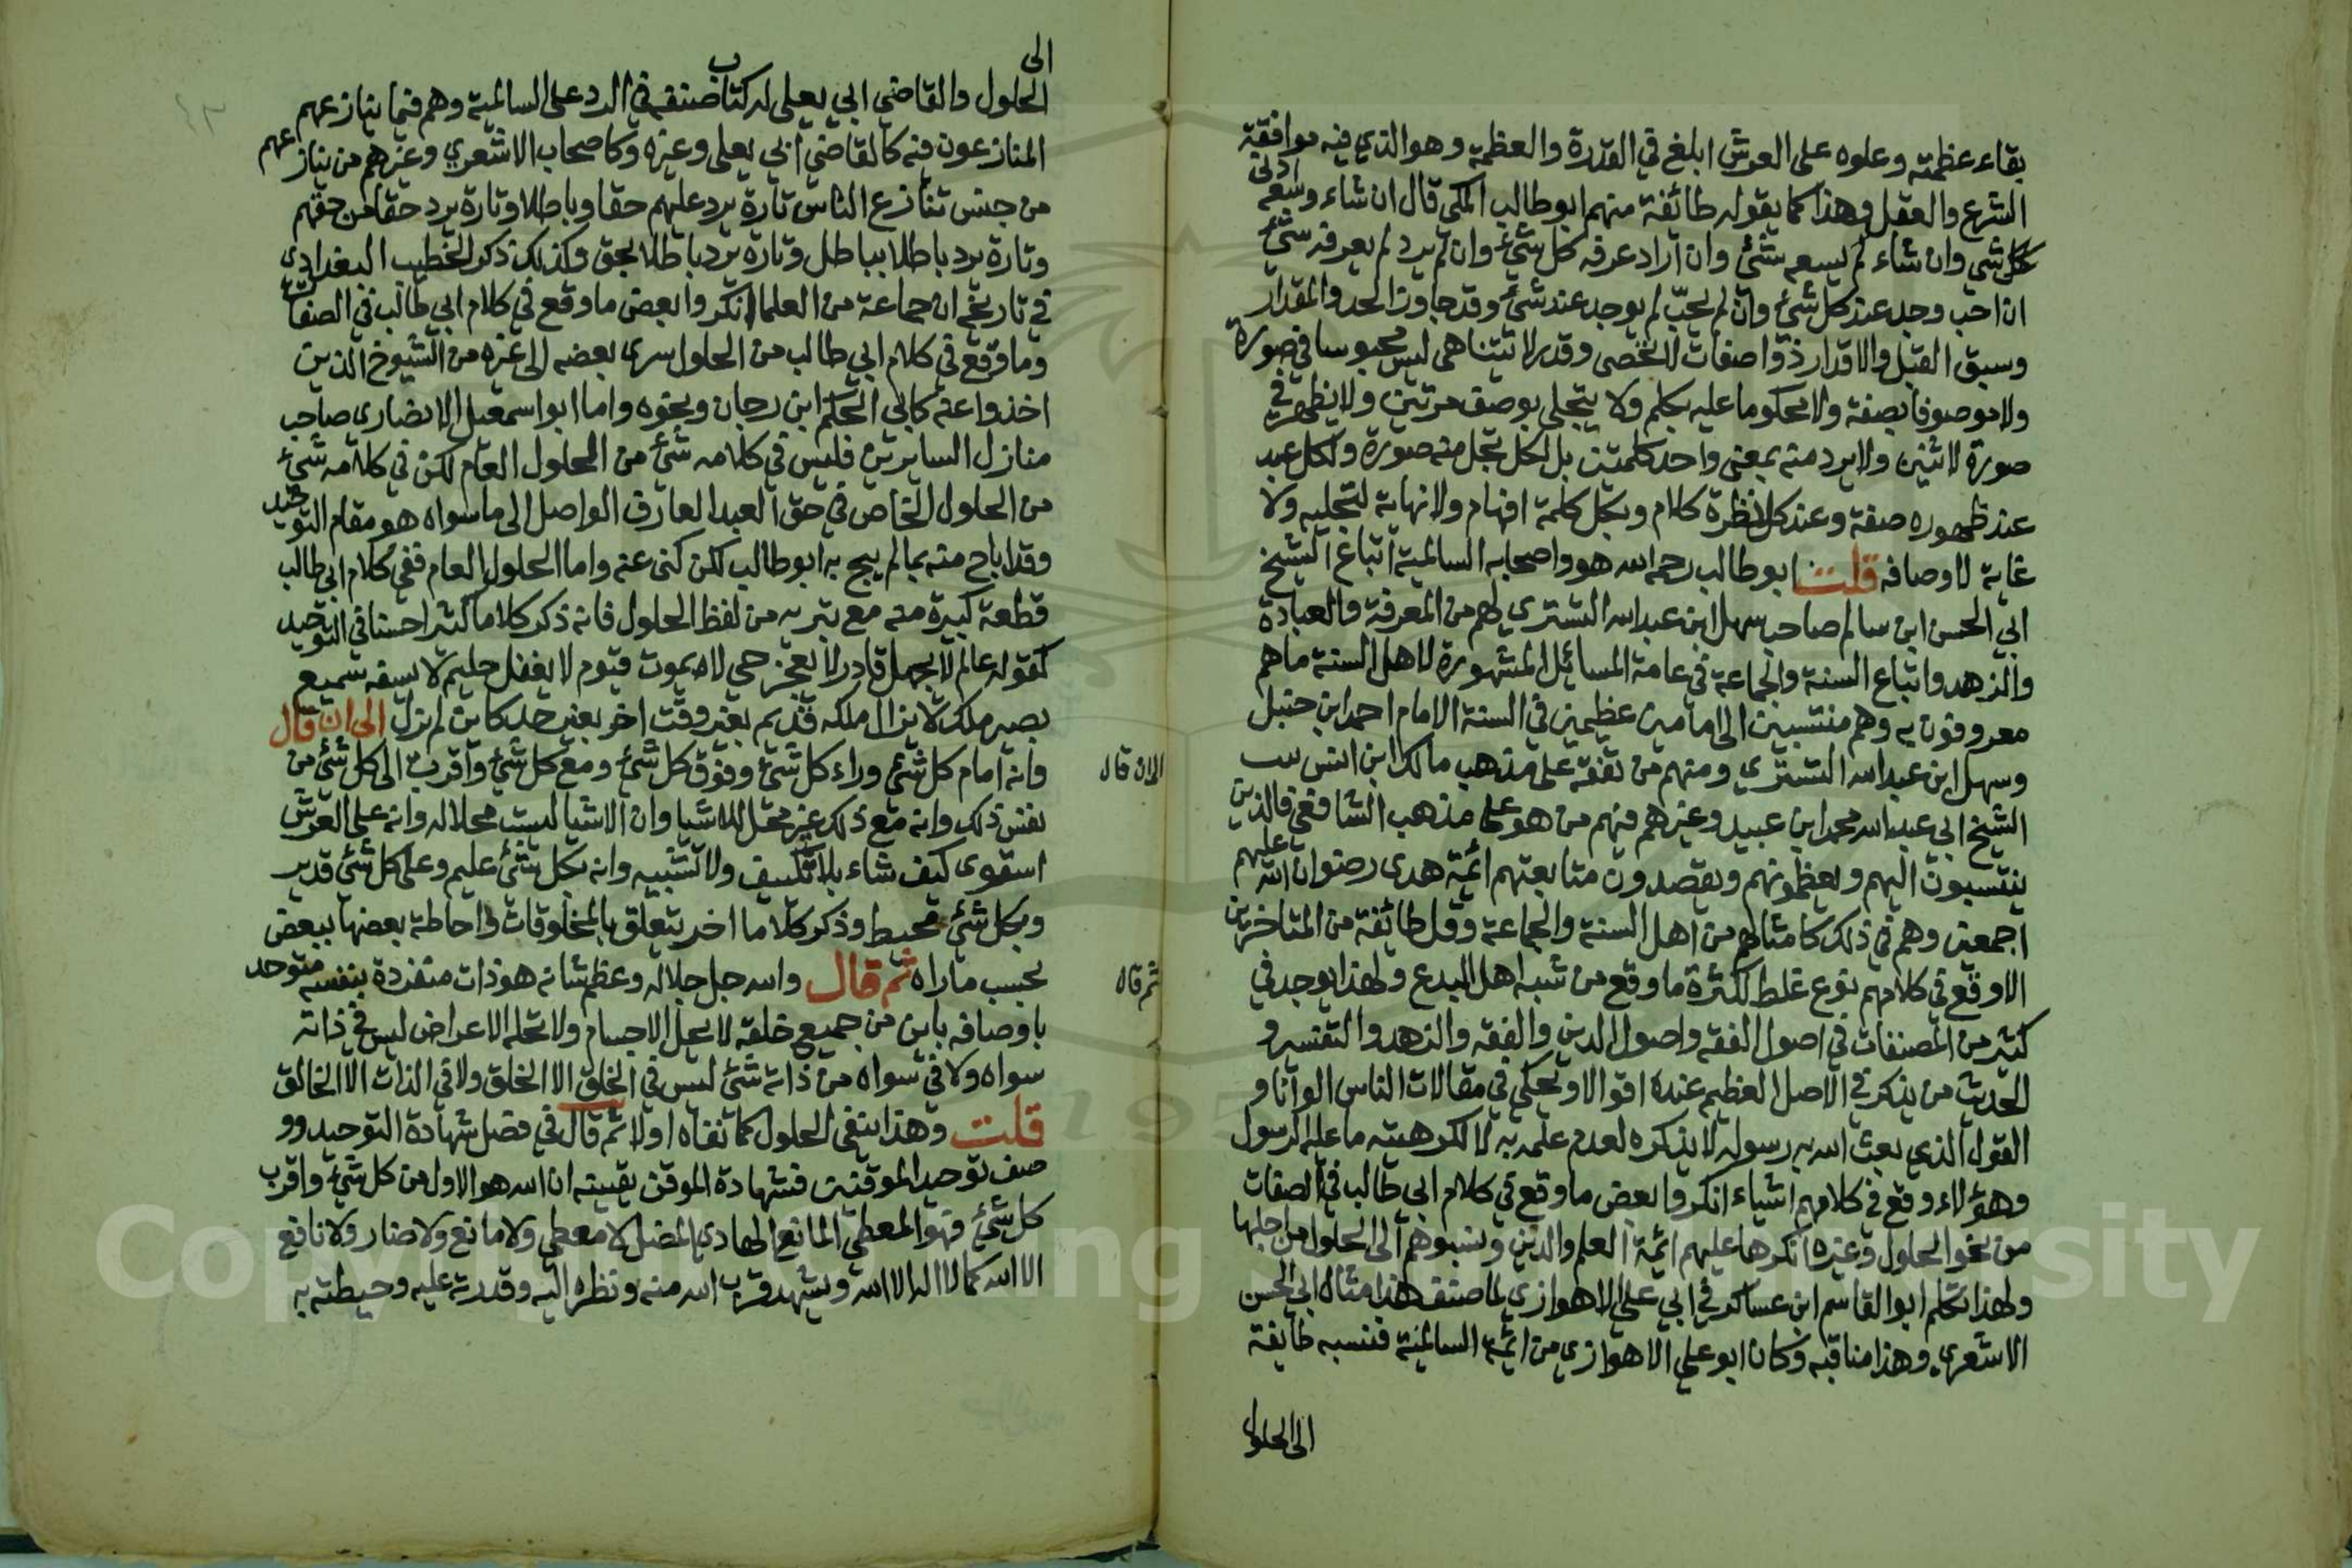 بقاء عظمته وعلوه على العرش ابلغ في القدرة والعظمة وهو الذي فيه موافقة
الشرع والعقل وهذا كما يقوله طائفة منهم ابو طالب المكي قال ان شاء وسعه ادنى
كل شي وان شاء لم يسعه شئ وان اراد عرفه كل شئ وان لم يرد لم يعرفه شئ
ان احب وجد عند كل شئ وان لم يحب لم يوجد عند شئ وقد جاوز الحد والمقدار
وسبق القبل والاقدار ذو اصفات لا تحصى وقدر لا تتناهى ليس محبوسا في صورة
ولا موصوفا بصفة ولا محكوما عليه بكلم ولا يتجلى بوصف مرتين ولا يظهر في
صورة لاثنين ولا يرد منه بمعنى واحد كلمتين بل لكل تجل منه صورة ولكل عبد
عند ظهوره صفة وعند كل نظرة كلام وبكل كلمة افهام ولا نهاية لتجليه ولا
غاية لاوصافه قلت ابو طالب رحمه الله هو واصحابه السالمية اتباع الشيخ
ابي الحسن ابن سالم صاحب سهل ابن عبد الله التستري لهم من المعرفة والعبادة
والزهد واتباع السنة والجماعة في عامة المسائل المشهورة لاهل السنة ما هم
معروفون به وهم منتسبين الى امامين عظيمين في السنة الامام احمد ابن حنبل
وسهل ابن عبد الله التستري ومنهم من تفقه على مذهب مالك ابن انس بيت
الشيخ ابي عبد الله محمد ابن عبيد وغيرهم فيهم من هو على مذهب الشافعي فالذين
ينتسبون اليهم ويعظمونهم ويقصدون متابعتهم ائمة هدى رضوان الله عليهم
اجمعين وهم في ذلك كامثالهم من اهل السنة والجماعة وقل طائفة من المتاخرين
الا وقع في كلامهم نوع غلط لكثرة ما وقع من شبه اهل البدع ولهذا يوجد في
كثير من المصنفات في اصول الفقه واصول الدين والفقه والزهد والتفسير و
الحديث من يذكر في الاصل العظيم عنده اقوالا ويحكي في مقالات الناس الوانا و
القول الذي بعث الله به رسوله لا يذكره لعدم علمه به لا لكرهيته ما عليه الرسول
وهؤلاء وقع في كلامهم اشياء انكروا بعض ما وقع في كلام ابي طالب في الصفات
من نحو الحلول وغيره انكرها عليهم ائمة العلم والدين ونسبوهم الى الحلول من اجلها
ولهذا تكلم ابو القاسم ابن عساكر في ابي علي الاهوازي لما صنف هذا مثالب ابي الحسن
الاشعري وهذا مناقبه وكان ابو علي الاهوازي من ائمة السالمية فنسبه طايفة
الى الحلول
الى
الحلول والقاضي ابي يعلى له كتاب صنفه في الرد على السالمية وهم فيما ينازعهم
المنازعون فيه كالقاضي ابي يعلى وغيره وكاصحاب الاشعري وغيرهم من ينازعهم
من جنس تنازع الناس تارة يرد عليهم حقا وباطلا وتارة يرد حقا من حقهم
وتارة يرد باطلا بباطل وتارة يرد باطلا بحق وكذلك ذكر الخطيب البغدادي
في تاريخه ان جماعة من العلما انكروا بعض ما وقع في كلام ابي طالب في الصفات
وما وقع في كلام ابي طالب من الحلول سرى بعضه الى غيره من الشيوخ الذين
اخذوا عنه كابي الحكم ابن رجان ونحوه واما ابو اسمعيل الانصاري صاحب
منازل السايرين فليس في كلامه شئ من الحلول العام لكن في كلامه شئ
من الحلول الخاص في حق العبد العارف الواصل الى ما سواه هو مقام التوحيد
وقد اباح منه بما لم يبح به ابو طالب لكن كنى عنه واما الحلول العام ففي كلام ابي طالب
قطعة كبيرة منه مع تبريه من لفظ الحلول فانه ذكر كلاما كثيرا حسنا في التوحيد
كقوله عالم لا يجهل قادر لا يعجز حي لا يموت قيوم لا يغفل حليم لا يسفه سميع
بصير ملك لا يزال ملكه قديم بغير وقت اخر بغير حد كاين لم يزل الى ان قال
وانه امام كل شئ وراء كل شئ وفوق كل شئ ومع كل شئ واقرب الى كل شئ من
الى ان قال
نفس ذلك وانه مع ذلك غير محل للاشيا وان الاشيا ليست محلا له وانه على العرش
استوى كيف شاء بلا تكييف ولا تشبيه وانه بكل شئ عليم وعلى كل شئ قدير
وبكل شئ محيط وذكر كلاما اخر يتعلق بالمخلوقات واحاطة بعضها ببعض
بحسب ما راه ثم قال والله جل جلاله وعظم شانه هو ذات منفردة بنفسه متوحد
ثم قال
باوصافه باين من جميع خلقه لا يحل الاجسام ولا تحله الاعراض ليس في ذاته
سواه ولا في سواه من ذاته شئ ليس في الخلق الا الخلق ولا في الذات الا الخالق
قلت وهذا ينفي الحلول كما نفاه اولا ثم قال في فصل شهادة التوحيد وو
صف توحيد الموقنين فشهادة الموقن بقينه ان الله هو الاول من كل شئ واقرب
كل شئ فهو المعطي المانع الهادي المضل لا معطي ولا مانع ولا ضار ولا نافع
الا الله كما لا اله الا الله ويشهد قرب الله منه ونظره اليه وقدرته عليه وحيطته به